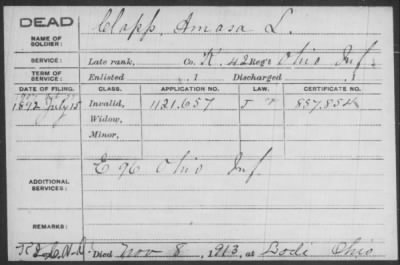 DEAD
NAME OF SOLDIER:
Clapp, Amasa L.
SERVICE:
Late rank, Co. K, 42 Reg't Ohio Inf.
TERM OF SERVICE:
Enlisted , 1 Discharged , 1
DATE OF FILING. CLASS. APPLICATION NO. LAW. CERTIFICATE NO.
1892 July 15 Invalid, 1121.657 857.854
Widow,
Minor,
ADDITIONAL SERVICES:
E 96 Ohio Inf.
REMARKS:
Died Nov 8, 1913, at Lodi Ohio